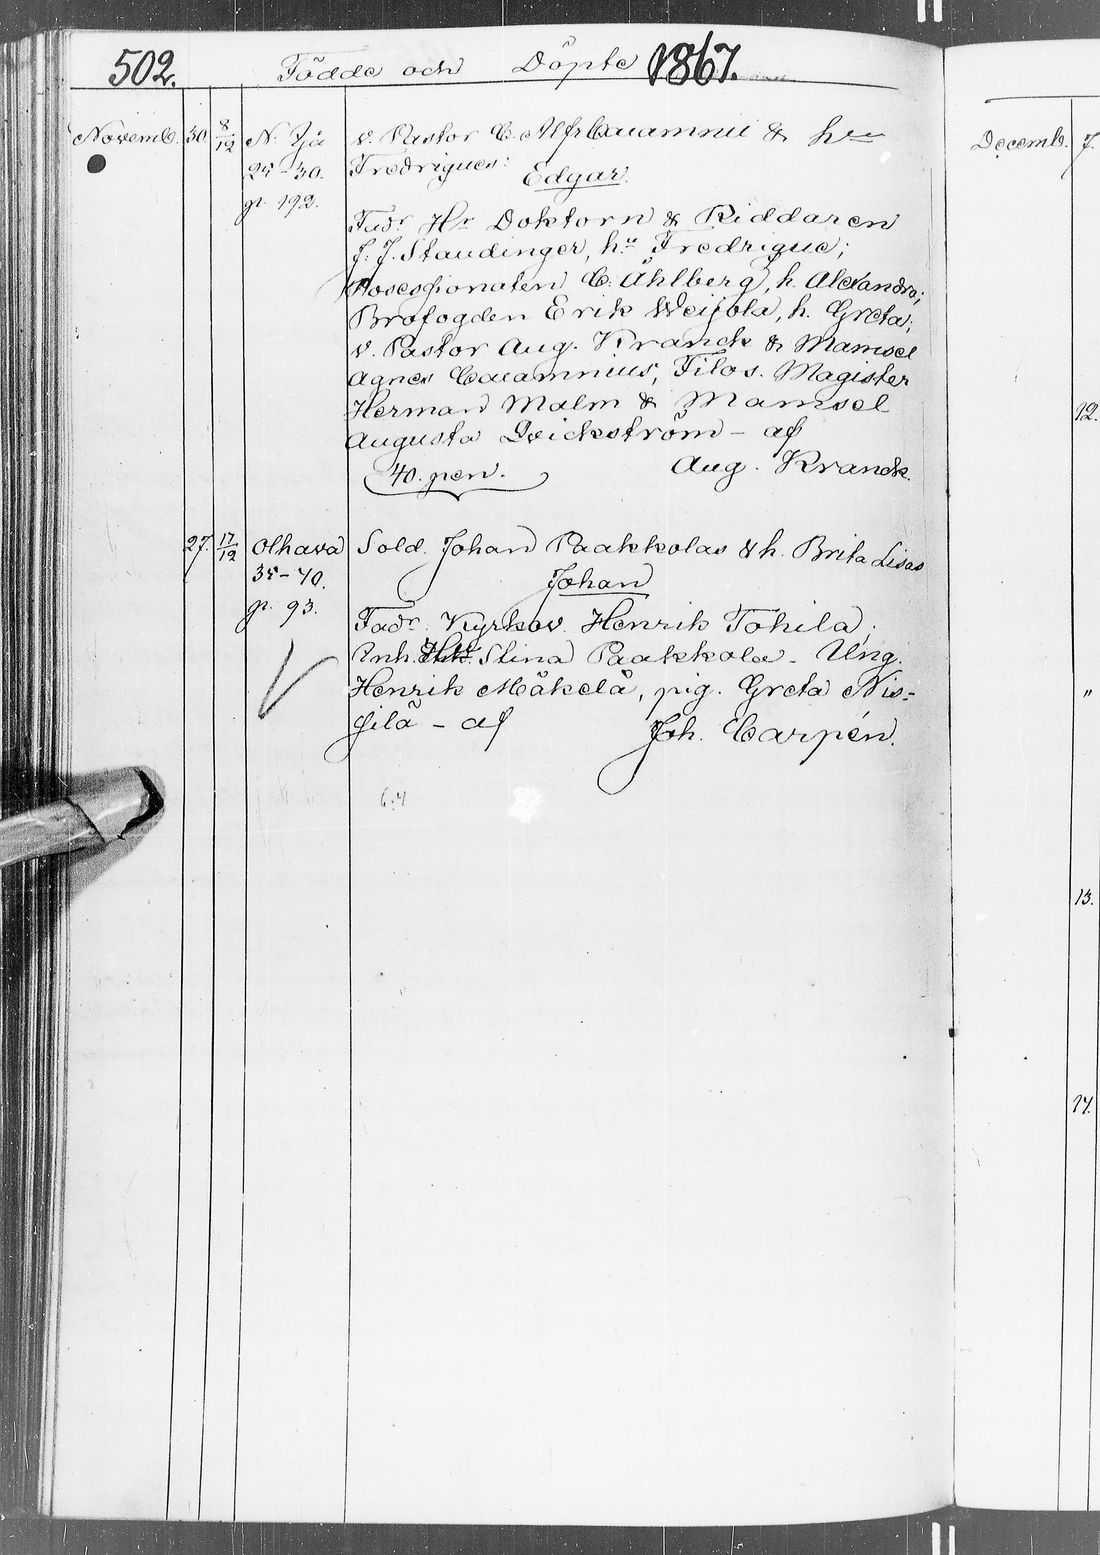 502. Födde och Döpte 1867.
Novemb. 30. 8/12 N. Ijå v. Pastor C. Alfr Cajamnii & hu
25-30. Fredriques:
Edgar.
p. 192.
Fadr. Hr Doktorn & Riddaren
f. J. Staudinger, hu Fredrique;
Possessionaten C. Åhlberg, h. Alexandra;
Brofogden Erik Weijola, h. Greta;
v. Pastor Aug. Kranck & Mamsel
Agnes Cajamnius, Filos. Magister
Herman Malm & Mamsel
Augusta Qvickström - af
40. pen. Aug. Kranck.
27. 17/12 Olhava Sold. Johan Paakkolas & h. Brita Lisas
35-40. Johan
p. 93.
Fadr. Kyrkov. Henrik Tohila,
Inh. Stina Paakkola. Ung.
Henrik Mäkelä, pig. Greta Nis-
silä - af Joh. Carpén.
6:4
Decemb. 7.
12.
"
13.
14.